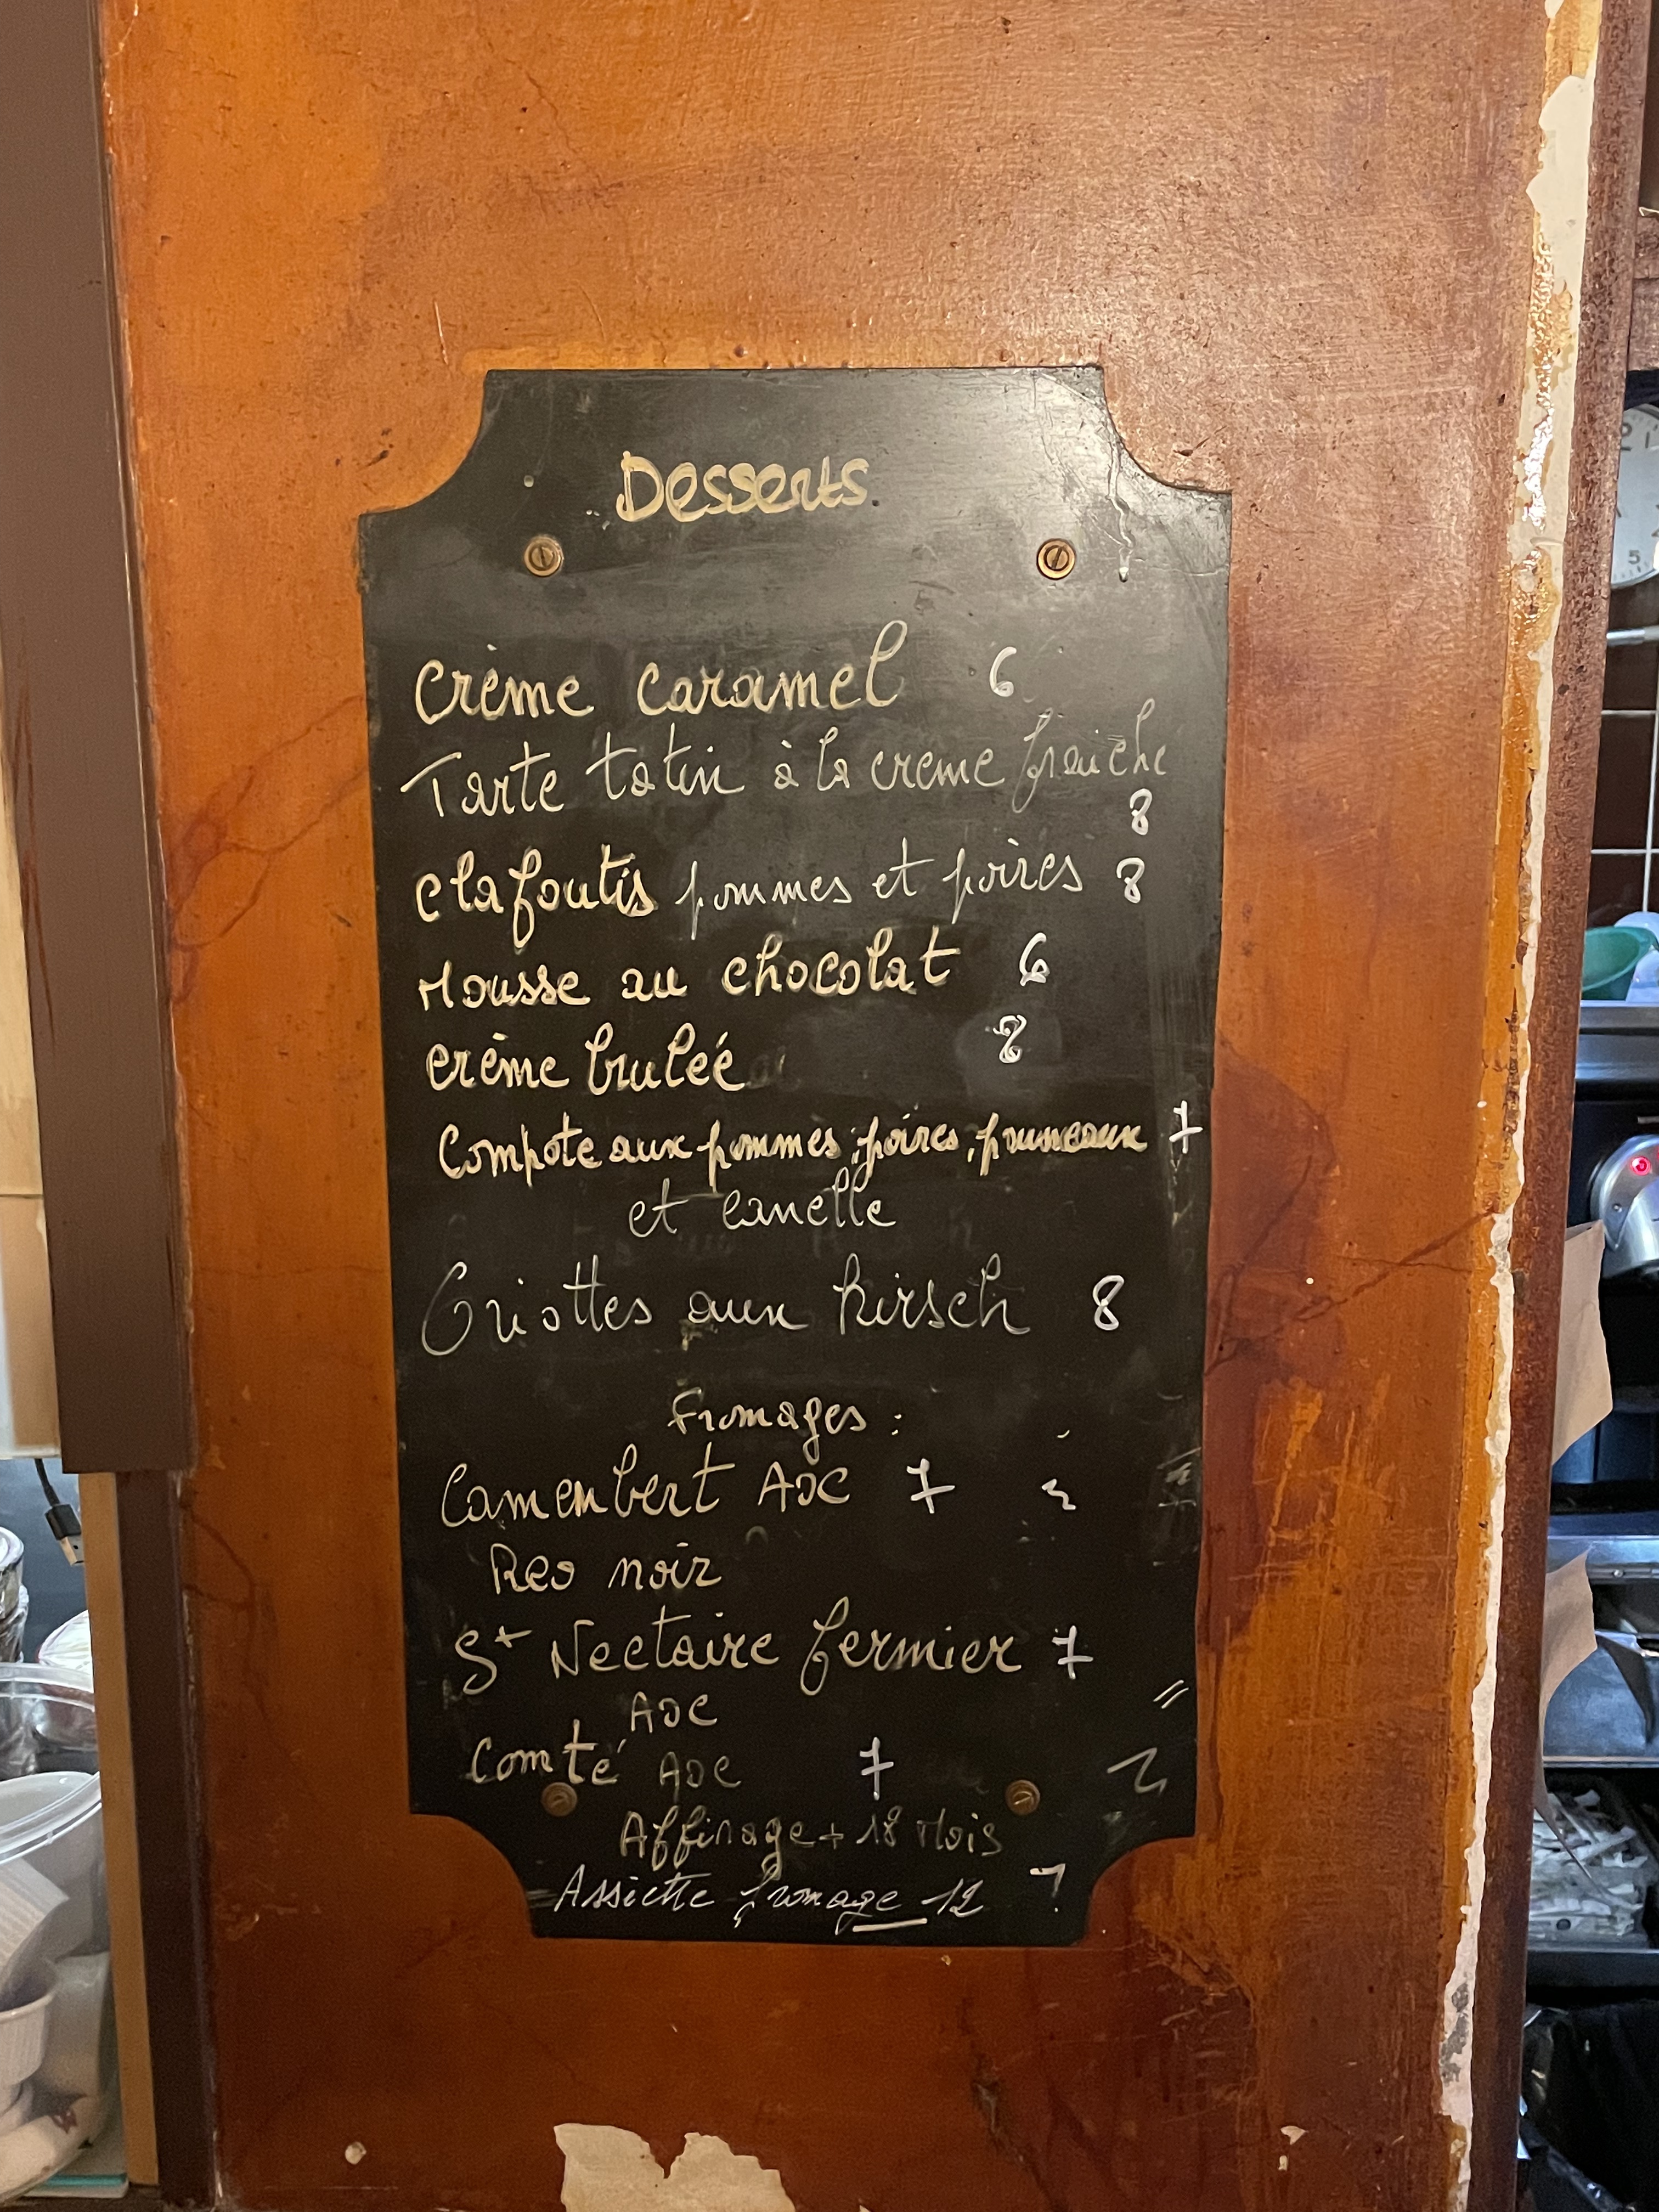 Desserts
Crème caramel 6
Tarte tatin à la creme fraiche
8
Clafoutis pommes et poires 8
Mousse au chocolat 6
Crème brulée 8
Compote aux pommes, poires, pruneaux 7
et canelle
Griottes aux kirsch 8
Fromages :
Camembert AOC 7
Reo noir
St Nectaire fermier 7
AOC
Comté AOC 7
Affinage + 18 Mois
Assiette fromage 12